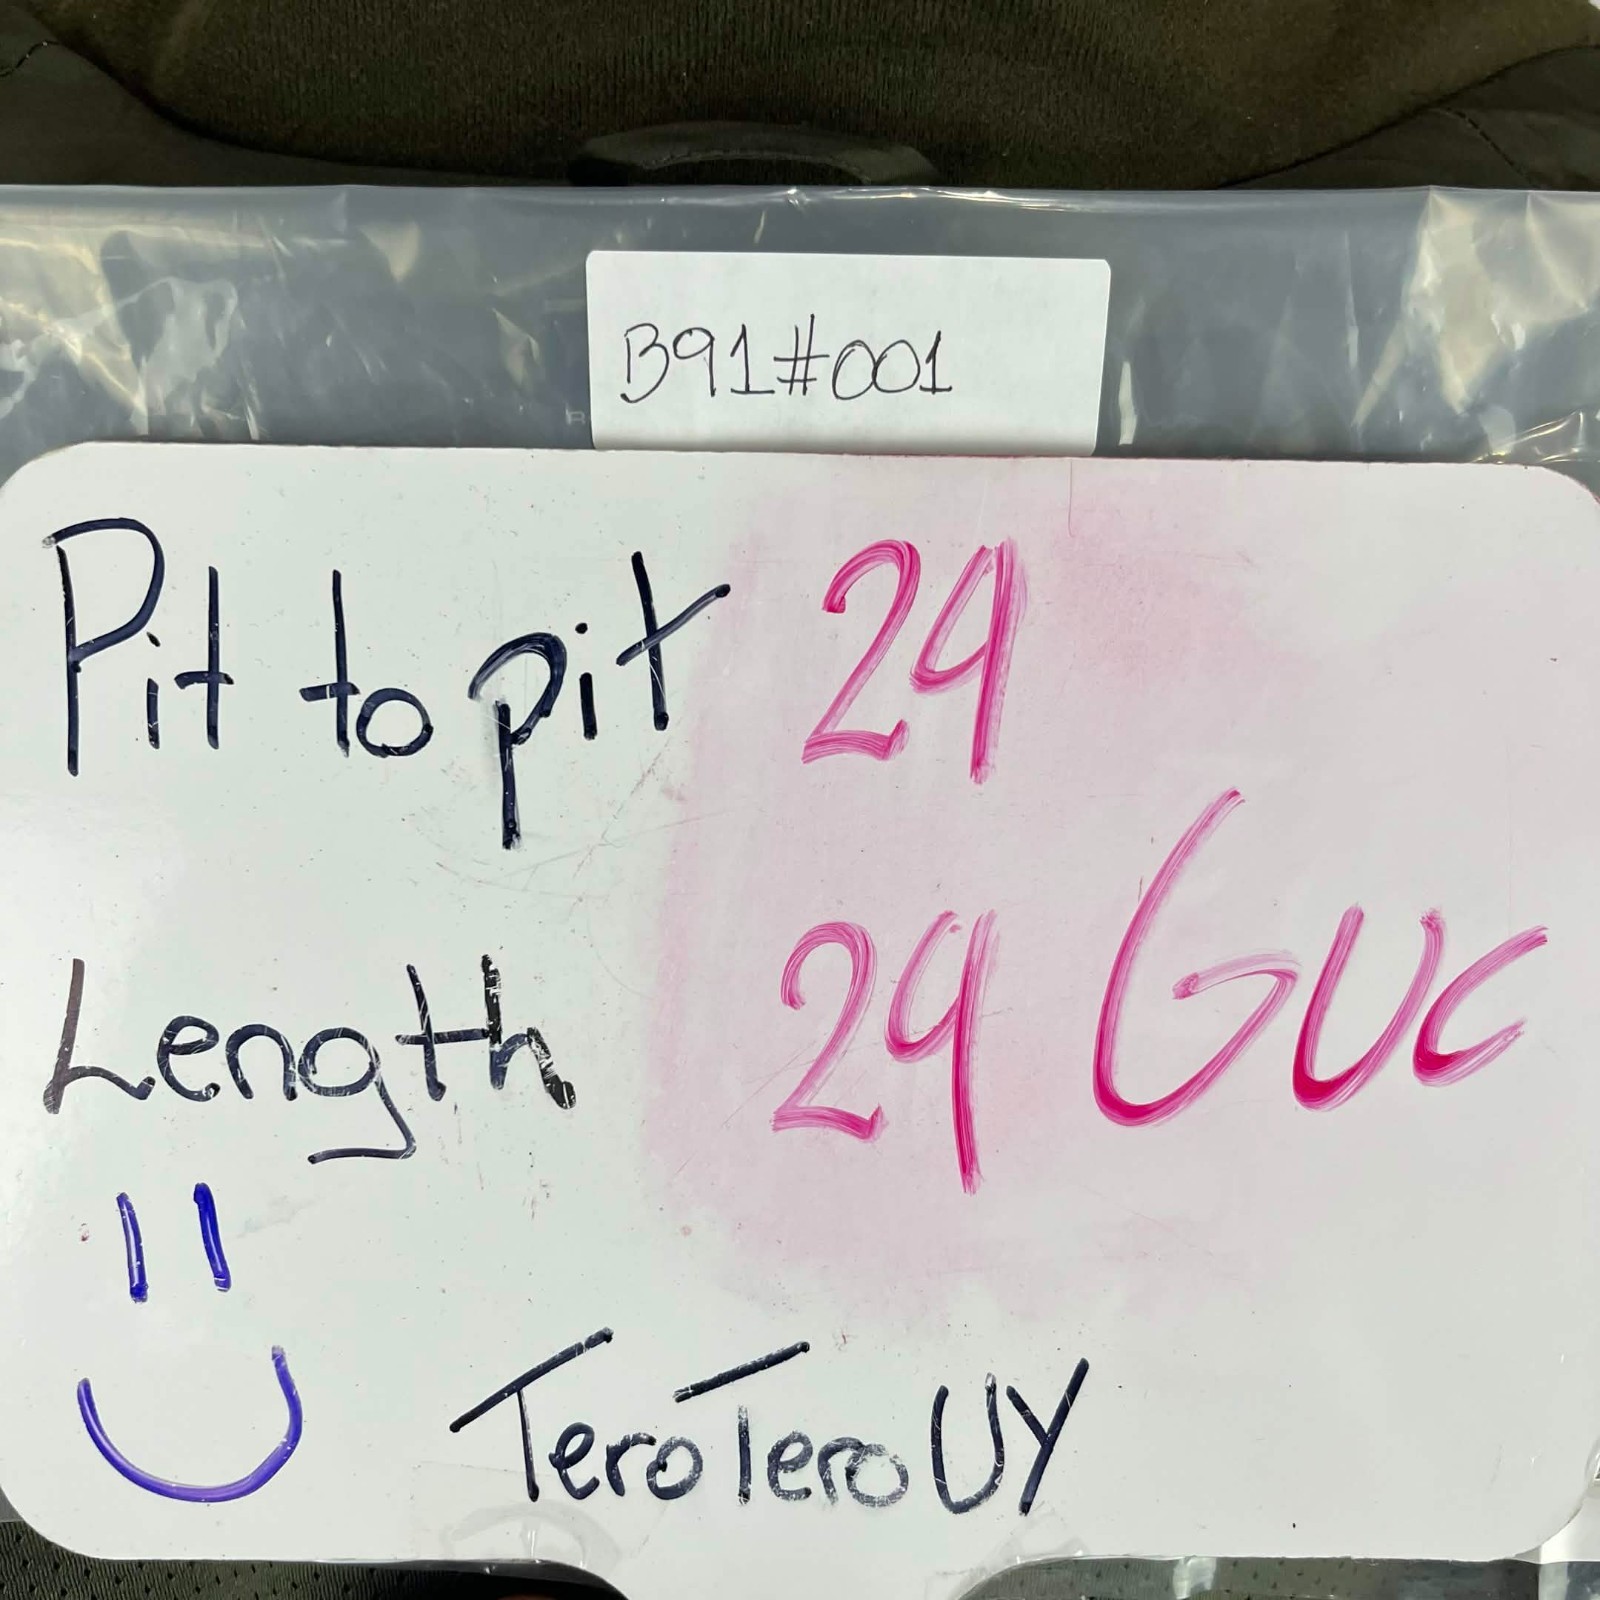 B91#001
Pit to pit 29
Length 29 GUC
TeroTeroUY